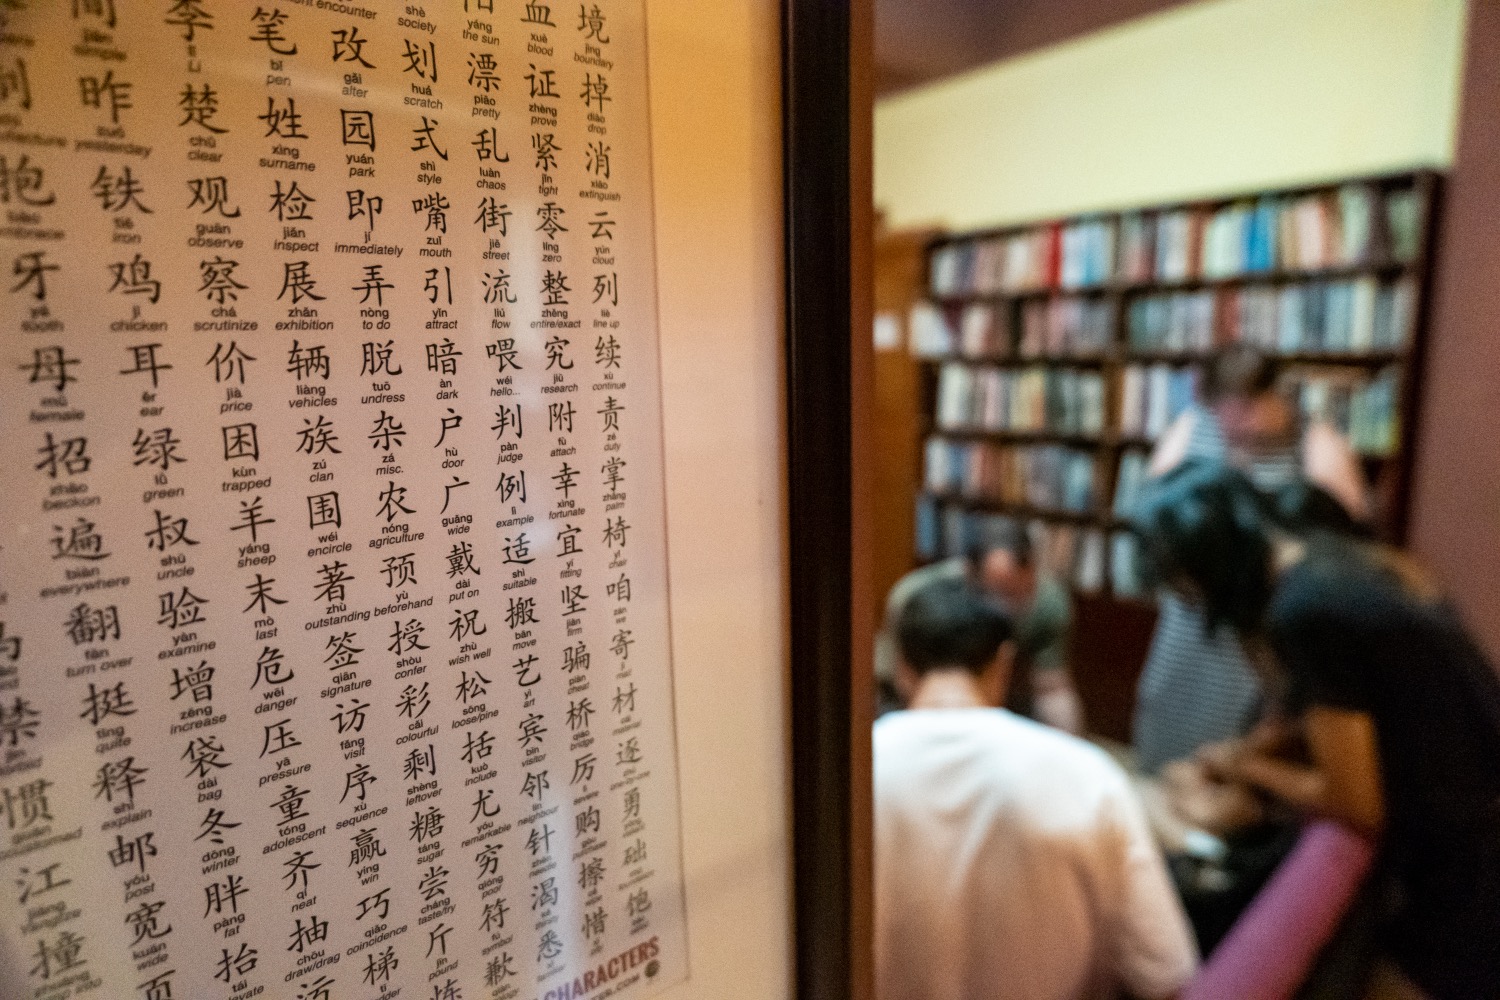 encounter shè yáng 血 境
society the sun xuè jìng
blood boundary
李 笔 改 划 漂 证 掉
simple lǐ bǐ gǎi huá piào zhèng diào
pen alter scratch pretty prove drop
昨 楚 姓 园 式 乱 紧 消
zuó chǔ xìng yuán shì luàn jǐn xiāo
yesterday clear surname park style chaos tight extinguish
抱 铁 观 检 即 嘴 街 零 云
bào tiě guān jiǎn jí zuǐ jiē líng yún
embrace iron observe inspect immediately mouth street zero cloud
牙 鸡 察 展 弄 引 流 整 列
yá jī chá zhǎn nòng yǐn liú zhěng liè
tooth chicken scrutinize exhibition to do attract flow entire/exact line up
母 耳 价 辆 脱 暗 喂 究 续
mǔ ěr jià liàng tuō àn wéi jiū xù
female ear price vehicles undress dark hello... research continue
招 绿 困 族 杂 户 判 附 责
zhāo lǜ kùn zú zá hù pàn fù zé
beckon green trapped clan misc. door judge attach duty
遍 叔 羊 围 农 广 例 幸 掌
biàn shū yáng wéi nóng guǎng lì xìng zhǎng
everywhere uncle sheep encircle agriculture wide example fortunate palm
翻 验 末 著 预 戴 适 宜 椅
fān yàn mò zhù yù dài shì yí yǐ
turn over examine last outstanding beforehand put on suitable fitting chair
禁 挺 增 危 签 授 祝 搬 坚 咱
tǐng zēng wēi qiān shòu zhù bān jiān zán
quite increase danger signature confer wish well move firm we
惯 释 袋 压 访 彩 松 艺 骗 寄
guàn shì dài yā fǎng cǎi sōng yì piàn jì
explain bag pressure visit colourful loose/pine art cheat mail
江 邮 冬 童 序 剩 括 宾 桥 材
yóu dōng tóng xù shèng kuò bīn qiáo
post winter adolescent sequence leftover include visitor bridge
撞 宽 胖 齐 赢 糖 尤 邻 厉 逐
kuān pàng qí yíng táng yóu lín lì
wide fat neat win sugar remarkable neighbour severe
页 抬 抽 巧 尝 穷 针 购 勇
tái chōu qiǎo cháng qióng zhēn
draw/drag coincidence taste/try poor needle purchase
梯 斤 符 渴 擦 础
tī jīn fú
pound symbol
炼 歉 悉 惜 饱
CHARACTERS